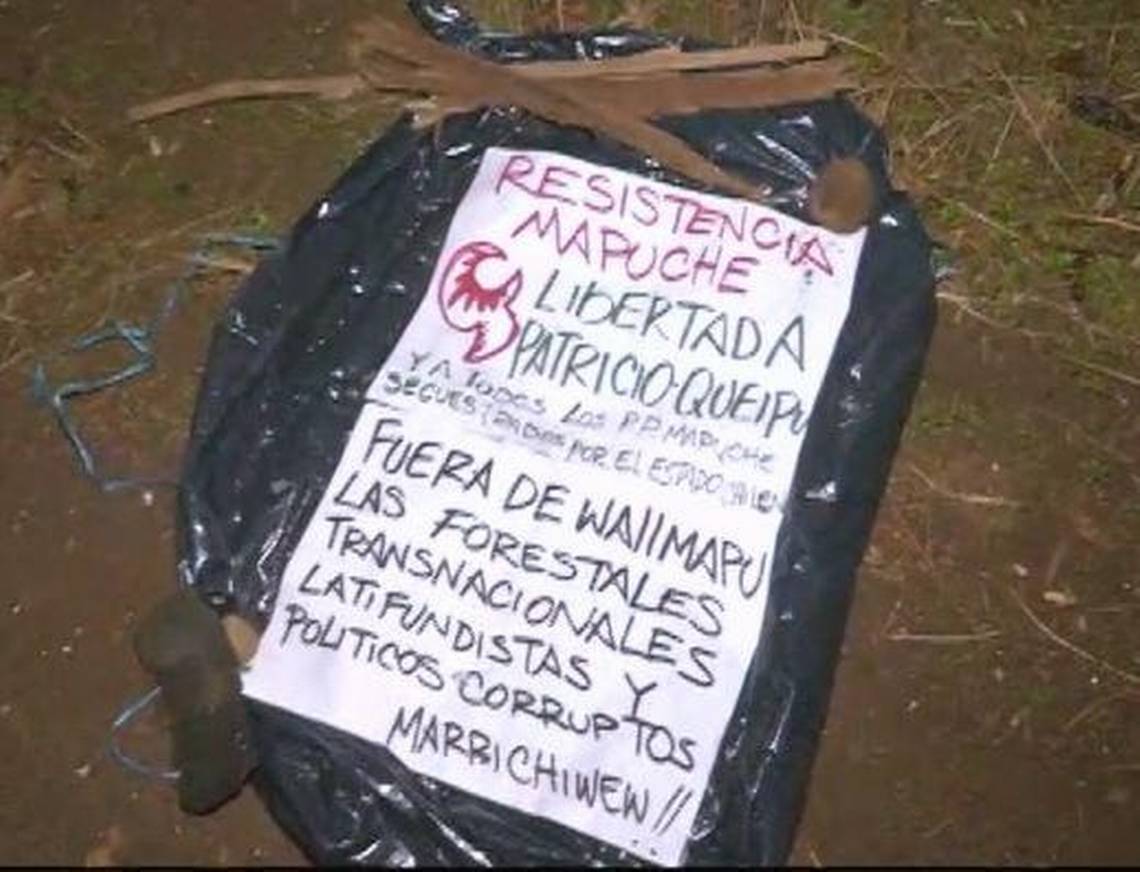 RESISTENCIA
MAPUCHE
LIBERTAD A
PATRICIO QUEIPU
Y A TODES LOS P.P. MAPUCHE
POR EL ESTADO
FUERA DE WALLMAPU
LAS FORESTALES
TRANSNACIONALES
LATIFUNDISTAS Y
POLITICOS CORRUPTOS
MARRICHIWEW //